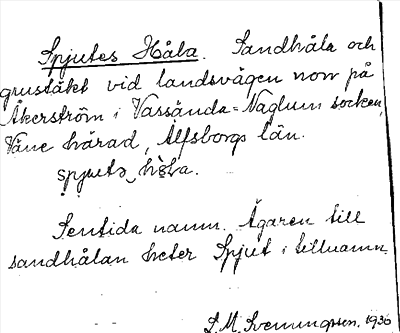 Spjutes Håla. Sandhåla och
grustäkt vid landsvägen norr på
Åkerström i Vassända-Naglum socken,
Väne härad, Älfsborgs län.
spjutə hɔla.
Sentida namn. Ägaren till
sandhålan heter Spjut i tillnamn.
S. M. Svenungsson. 1930